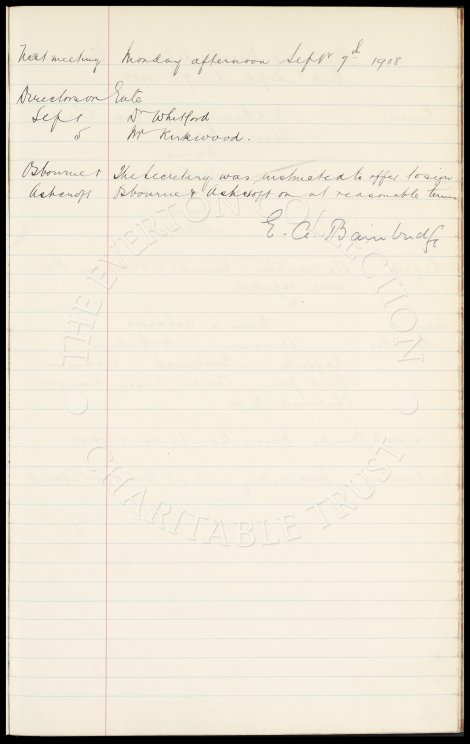 Next meeting Monday afternoon Sept 7d 1908
Directors on Gate
Sep 1 Dr Whitford
5 Mr Kirkwood.
Osbourne & The Secretary was instructed to offer to sign
Ashcroft Osbourne & Ashcroft on at reasonable terms
E. A. Bainbridge
THE EVERTON COLLECTION
CHARITABLE TRUST